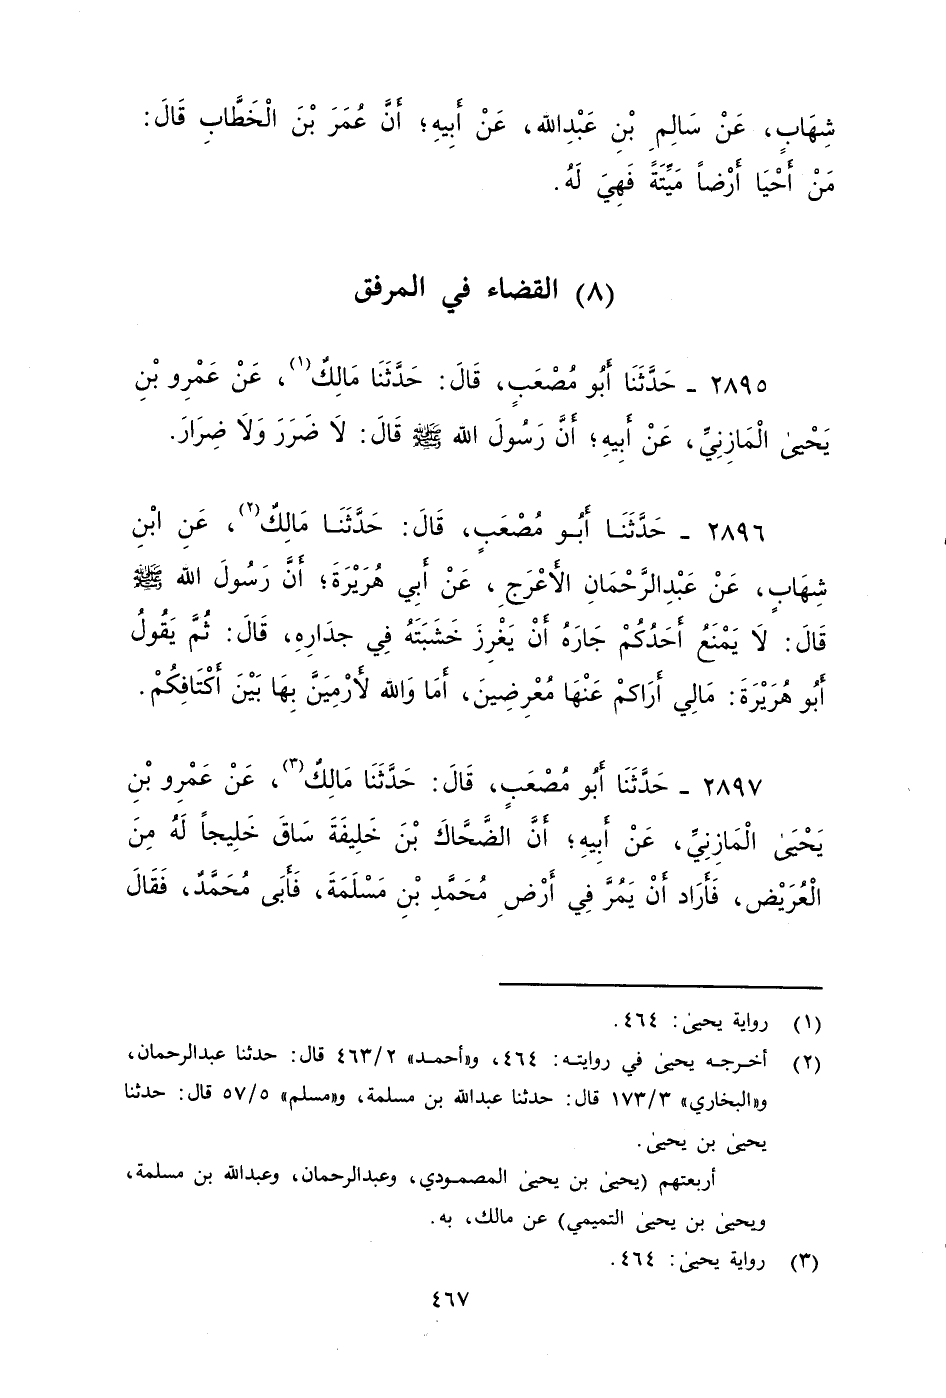 شِهَابٍ، عَنْ سَالِمِ بْنِ عَبْدِالله، عَنْ أَبِيهِ؛ أَنَّ عُمَرَ بْنَ الْخَطَّابِ قَالَ:
مَنْ أَحْيَا أَرْضاً مَيِّتَةً فَهِيَ لَهُ.
(٨) القضاء في المرفق
٢٨٩٥ ـ حَدَّثَنَا أَبُو مُصْعَبٍ، قَالَ: حَدَّثَنَا مَالِكٌ(١)، عَنْ عَمْرِو بْنِ
يَحْيىٰ الْمَازِنِيِّ، عَنْ أَبِيهِ؛ أَنَّ رَسُولَ الله ﷺ قَالَ: لَا ضَرَرَ وَلَا ضِرَارَ.
٢٨٩٦ ـ حَدَّثَنَا أَبُو مُصْعَبٍ، قَالَ: حَدَّثَنَا مَالِكٌ(٢)، عَنِ ابْنِ
شِهَابٍ، عَنْ عَبْدِالرَّحْمَانِ الأَعْرَجِ، عَنْ أَبِي هُرَيْرَةَ؛ أَنَّ رَسُولَ الله ﷺ
قَالَ: لَا يَمْنَعُ أَحَدُكُمْ جَارَهُ أَنْ يَغْرِزَ خَشَبَتَهُ فِي جِدَارِهِ، قَالَ: ثُمَّ يَقُولُ
أَبُو هُرَيْرَةَ: مَالِي أَرَاكمْ عَنْهَا مُعْرِضِينَ، أَمَا وَالله لأَرْمِيَنَّ بِهَا بَيْنَ أَكْتَافِكُمْ.
٢٨٩٧ ـ حَدَّثَنَا أَبُو مُصْعَبٍ، قَالَ: حَدَّثَنَا مَالِكٌ(٣)، عَنْ عَمْرِو بْنِ
يَحْيَىٰ الْمَازِنِيِّ، عَنْ أَبِيهِ؛ أَنَّ الضَّحَّاكَ بْنَ خَلِيفَةَ سَاقَ خَلِيجاً لَهُ مِنَ
الْعُرَيْضِ، فَأَرَاد أَنْ يَمُرَّ فِي أَرْضِ مُحَمَّدِ بْنِ مَسْلَمَةَ، فَأَبَى مُحَمَّدٌ، فَقَالَ
(١) رواية يحيىٰ: ٤٦٤.
(٢) أخرجه يحيىٰ في روايته: ٤٦٤، و«أحمد» ٤٦٣/٢ قال: حدثنا عبدالرحمان،
و«البخاري» ١٧٣/٣ قال: حدثنا عبدالله بن مسلمة، و«مسلم» ٥٧/٥ قال: حدثنا
يحيىٰ بن يحيىٰ.
أربعتهم (يحيىٰ بن يحيىٰ المصمودي، وعبدالرحمان، وعبدالله بن مسلمة،
ويحيىٰ بن يحيىٰ التميمي) عن مالك، به.
(٣) رواية يحيىٰ: ٤٦٤.
٤٦٧